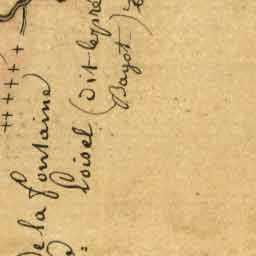 de la fontaine
Loisel (dit lepré
Bayot)